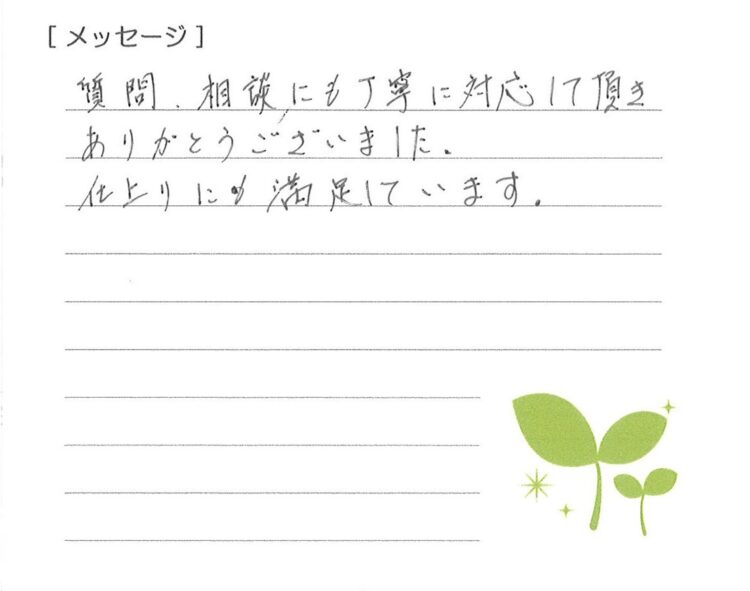 [メッセージ]
質問、相談にも丁寧に対応して頂き
ありがとうございました。
仕上りにも満足しています。